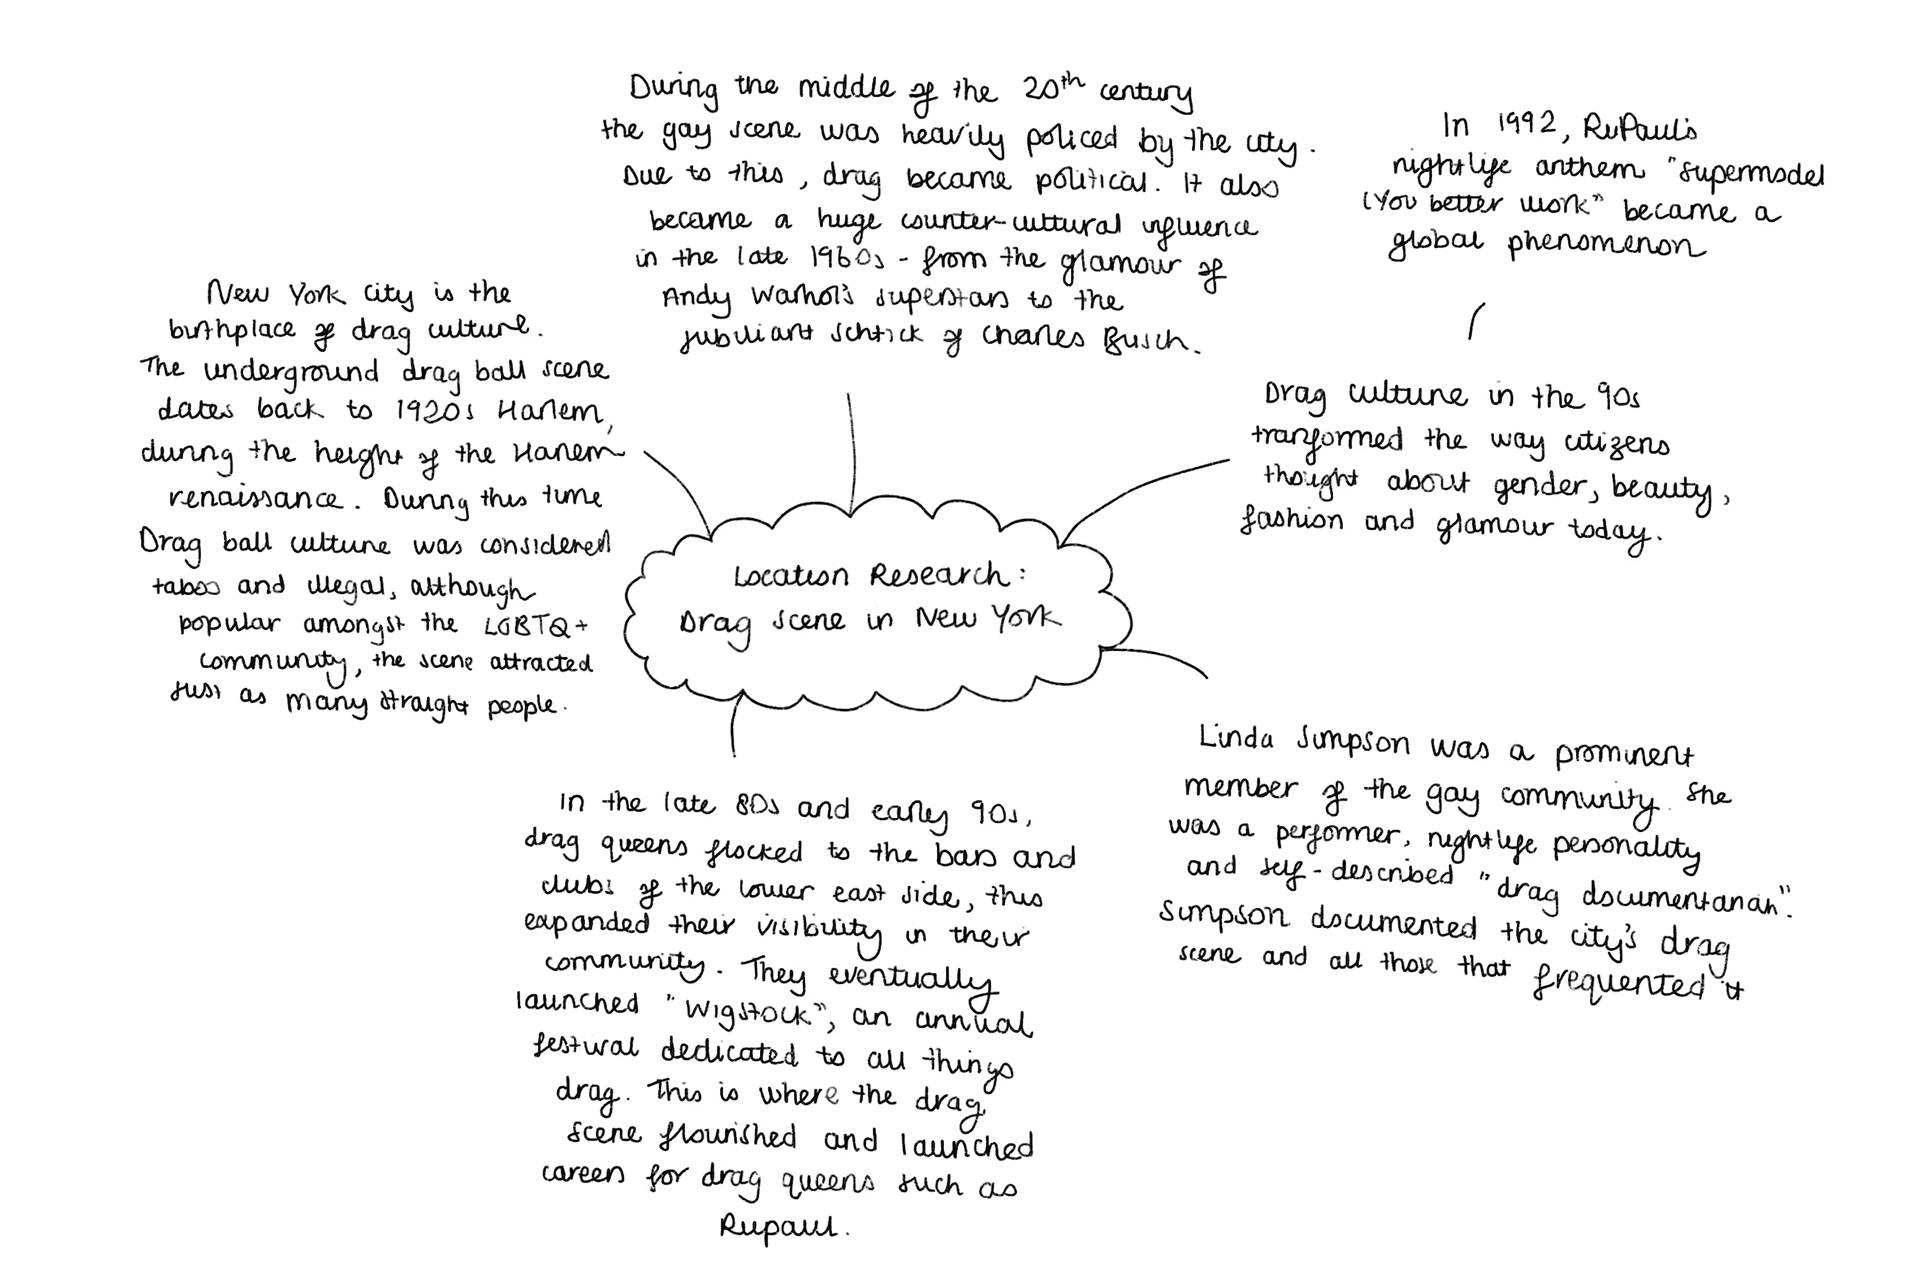 During the middle of the 20th century
the gay scene was heavily policed by the city.
Due to this, drag became political. It also
became a huge counter-cultural influence
in the late 1960s - from the glamour of
Andy Warhol's superstars to the
jubiliant schtick of Charles Busch.
In 1992, RuPaul's
nightlife anthem "supermodel
(You better work" became a
global phenomenon
New York city is the
birthplace of drag culture.
The underground drag ball scene
dates back to 1920s Harlem,
during the height of the Harlem
renaissance. During this time
Drag ball culture was considered
taboo and illegal, although
popular amongst the LGBTQ+
community, the scene attracted
just as many straight people.
Drag culture in the 90s
tranformed the way citizens
thought about gender, beauty,
fashion and glamour today.
Location Research:
Drag scene in New York
Linda Simpson was a prominent
member of the gay community. She
was a performer, nightlife personality
and self-described "drag documentarian".
Simpson documented the city's drag
scene and all those that frequented it
In the late 80s and early 90s,
drag queens flocked to the bars and
clubs of the lower east side, this
expanded their visibility in their
community. They eventually
launched "Wigstock", an annual
festival dedicated to all things
drag. This is where the drag
scene flourished and launched
careers for drag queens such as
Rupaul.